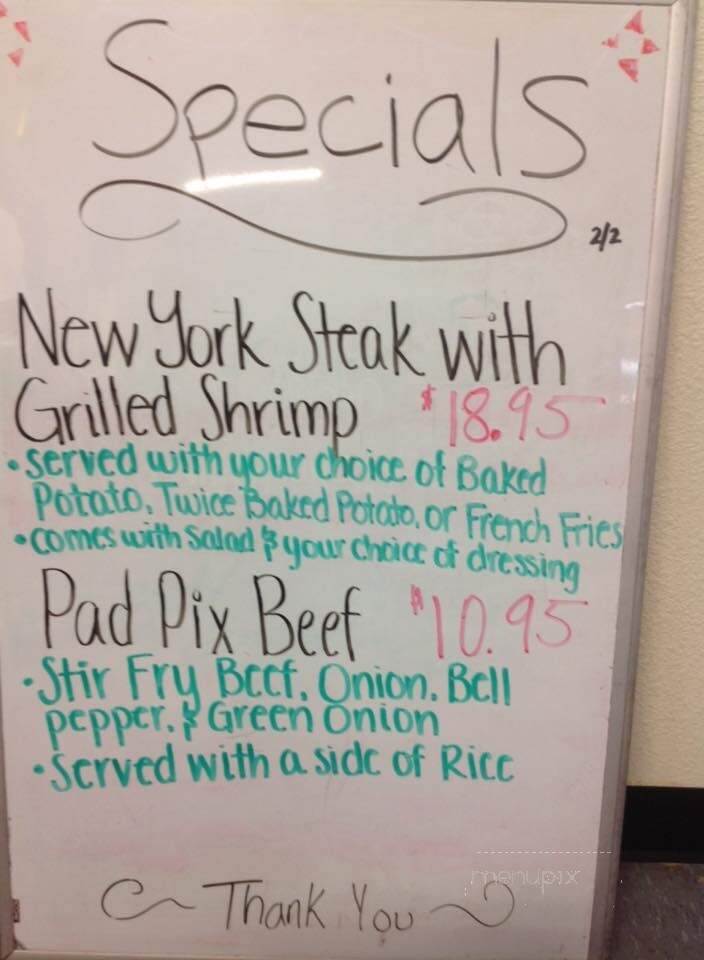 Specials
2/2
New York Steak with
Grilled Shrimp $18.95
• Served with your choice of Baked
Potato, Twice Baked Potato, or French Fries
• comes with Salad & your choice of dressing
Pad Pix Beef $10.95
• Stir Fry Beef, Onion, Bell
pepper, & Green Onion
• Served with a side of Rice
Thank You
menupix